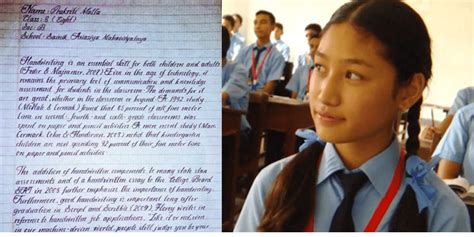 Name: Prakriti Malla
Class: 8 (Eight)
Sec: 'B'
School: Sainik Awasiya Mahavidyalaya
Handwriting is an essential skill for both children and adults
(Feder & Majnemer, 2007). Even in the age of technology, it
remains the primary tool of communication and knowledge
assessment for students in the classroom. The demands for it
are great, whether in the classroom or beyond. A 1992 study
(McHale & Cermak) found that 85 percent of all fine motor
time in second- fourth- and sixth-grade classrooms was
spent on paper and pencil activities. A more recent study (
Cermak, & Henderson, 2003) noted that kindergarten
children are now spending 42 percent of their fine motor time
on paper and pencil activities.
The addition of handwritten components to many state
assessments and of a handwritten essay to the College Board
SAT in 2005 further emphasize the importance of handwriting.
Furthermore, good handwriting is important long after
graduation. In Script and Scribble (2009), Florey writes in
reference to handwritten job applications, "Like it or not, even
in our machine-driven world, people still judge you by your